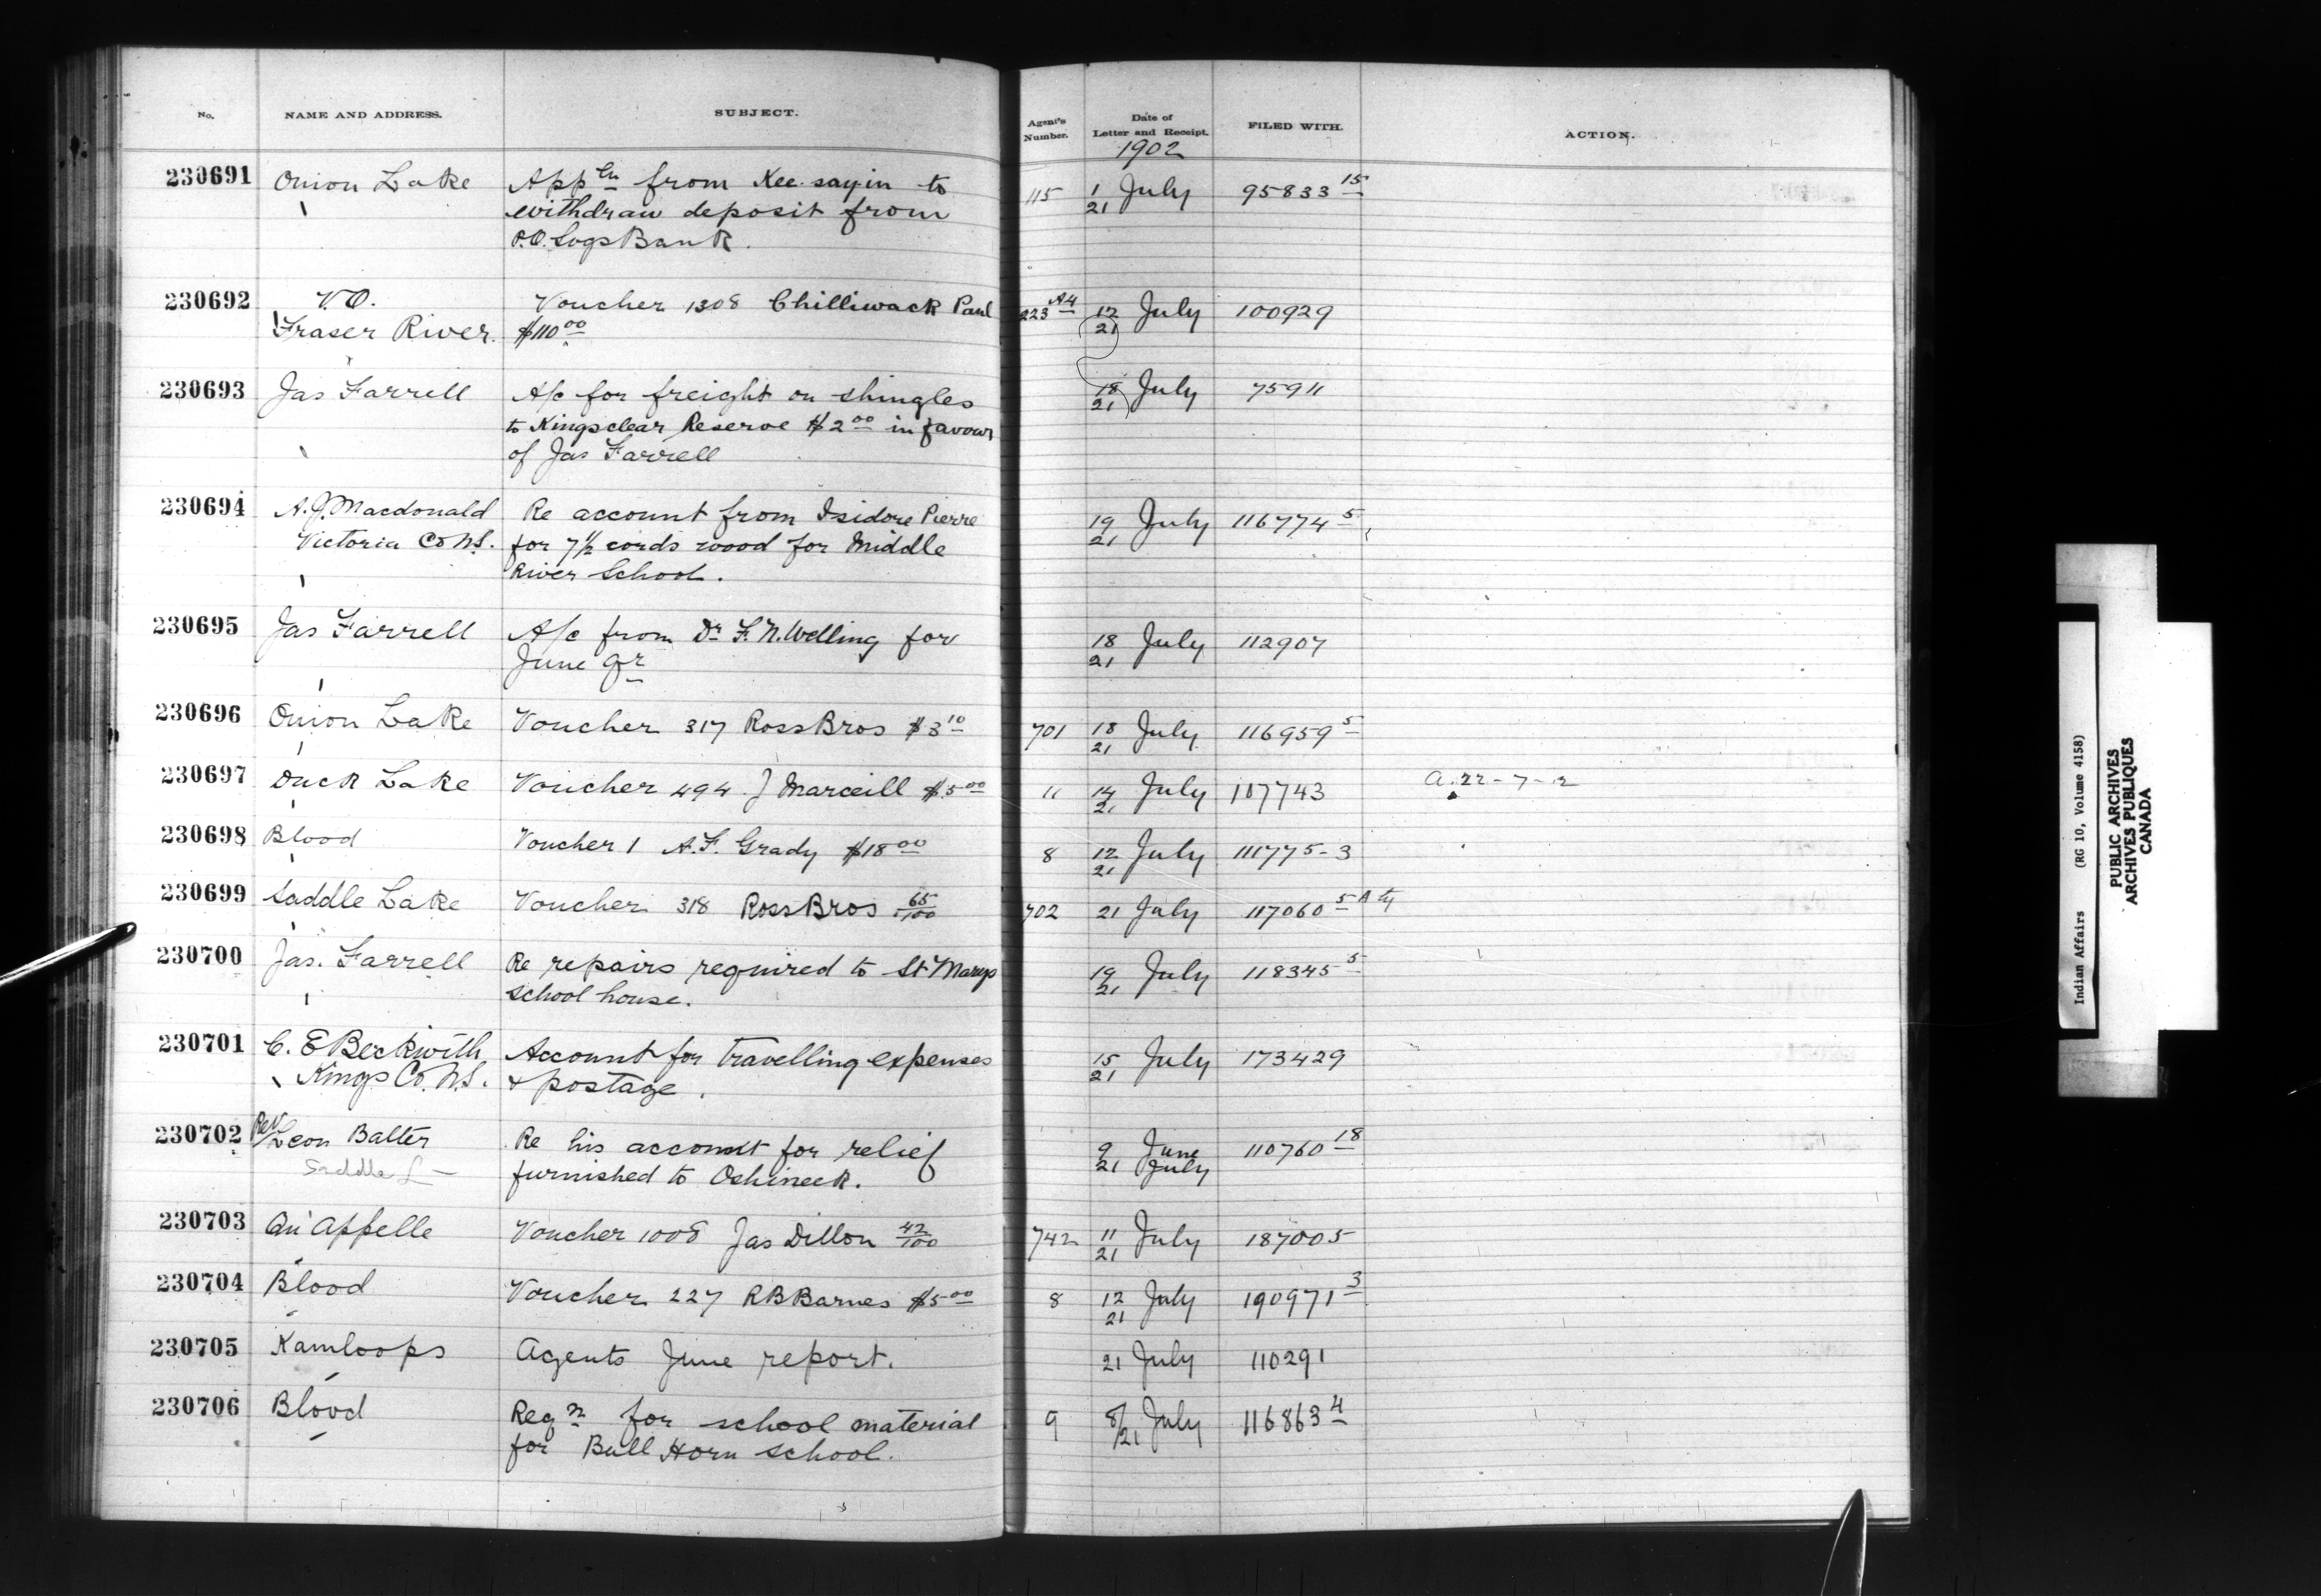 No. NAME AND ADDRESS. SUBJECT. Agent's Number. Date of Letter and Receipt. FILED WITH. ACTION.
1902
230691 Onion Lake App'ln from Kee-sayin to 115 1/21 July 95833 15
withdraw deposit from
P.O. Svgs Bank.
230692 V.O. Voucher 1308 Chilliwack Paul 223 A4 12/21 July 100929
Fraser River. $110 00
230693 Jas Farrell A/c for freight on shingles 18/21 July 75911
to Kingsclear Reserve $2 00 in favour
of Jas Farrell
230694 A.J. Macdonald Re account from Isidore Pierre 19/21 July 116774 5
Victoria Co N.S. for 7 1/2 cords wood for Middle
River School.
230695 Jas Farrell A/c from Dr F. N. Welling for 18/21 July 112907
June qr
230696 Onion Lake Voucher 317 Ross Bros $3 10 701 18/21 July 116959 5
230697 Duck Lake Voucher 494 J Marceill $5 00 11 14/21 July 107743 a. 22-7-2
230698 Blood Voucher 1 A.F. Grady $18 00 8 12/21 July 111775-3
230699 Saddle Lake Voucher 318 Ross Bros 65/100 702 21 July 117060 5
230700 Jas. Farrell Re repairs required to St Marys 19/21 July 118345 5
school house.
230701 C. E Beckwith, Account for travelling expenses 15/21 July 173429
Kings Co. N.S. & postage.
230702 Rev Leon Balter Re his account for relief 9 June 110760 18
Saddle L furnished to Oshineek. 21 July
230703 Qu'Appelle Voucher 1008 Jas Dillon 42/100 742 11/21 July 187005
230704 Blood Voucher 227 R B Barnes $5 00 8 12/21 July 190971 3
230705 Kamloops Agents June report. 21 July 110291
230706 Blood Reqn for school material 9 8/21 July 116863 4
for Bull Horn school.
Indian Affairs (RG 10, Volume 4158)
PUBLIC ARCHIVES
ARCHIVES PUBLIQUES
CANADA